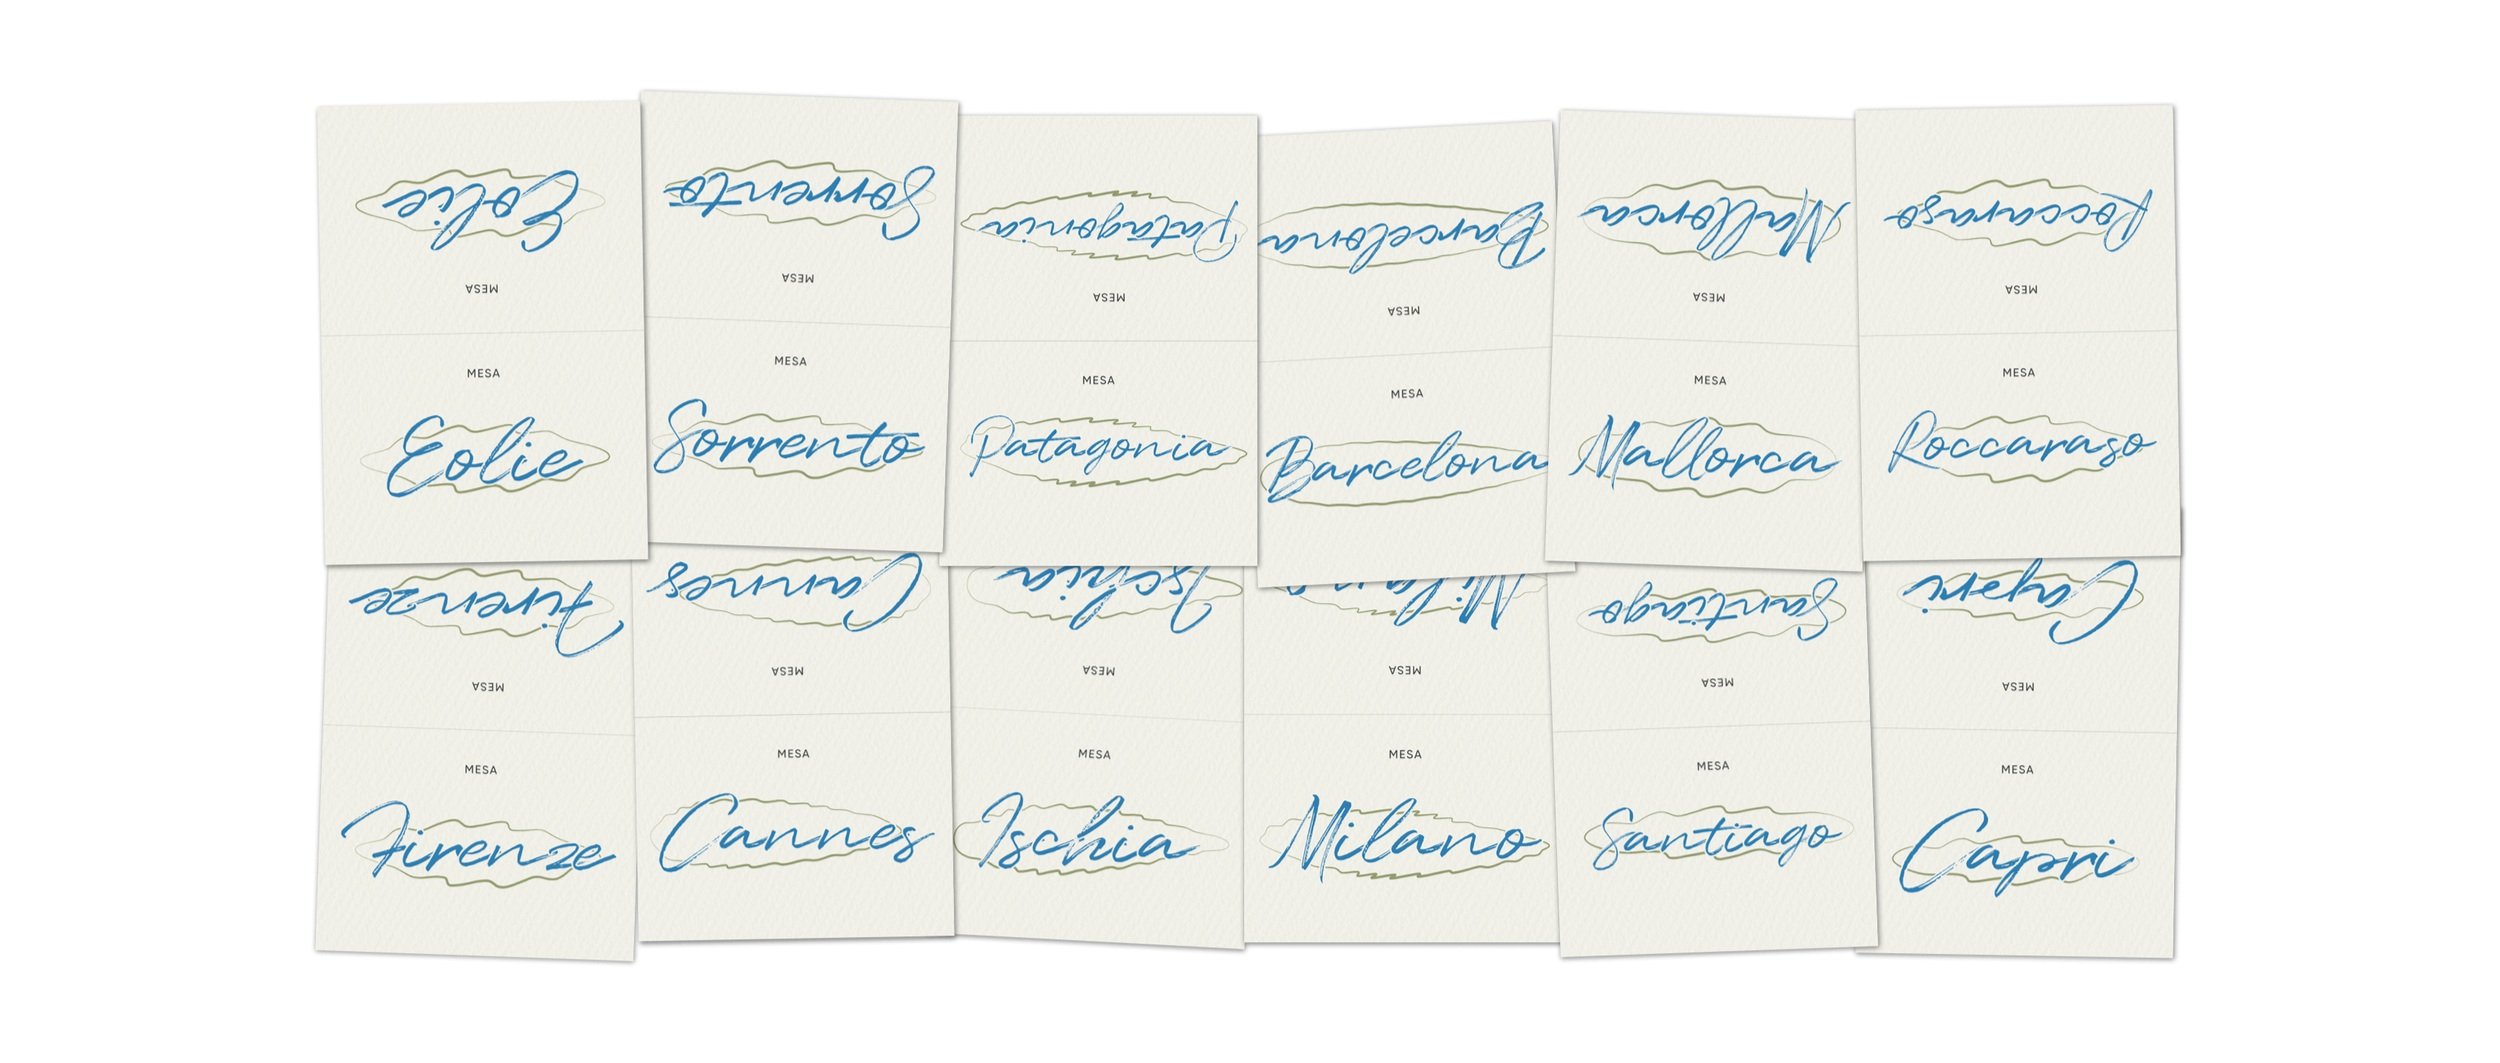 Eolie
MESA
MESA
Eolie
Sorrento
MESA
MESA
Sorrento
Patagonia
MESA
MESA
Patagonia
Barcelona
MESA
MESA
Barcelona
Mallorca
MESA
MESA
Mallorca
Roccaraso
MESA
MESA
Roccaraso
Firenze
MESA
MESA
Firenze
Cannes
MESA
MESA
Cannes
Ischia
MESA
MESA
Ischia
Milano
MESA
MESA
Milano
Santiago
MESA
MESA
Santiago
Capri
MESA
MESA
Capri